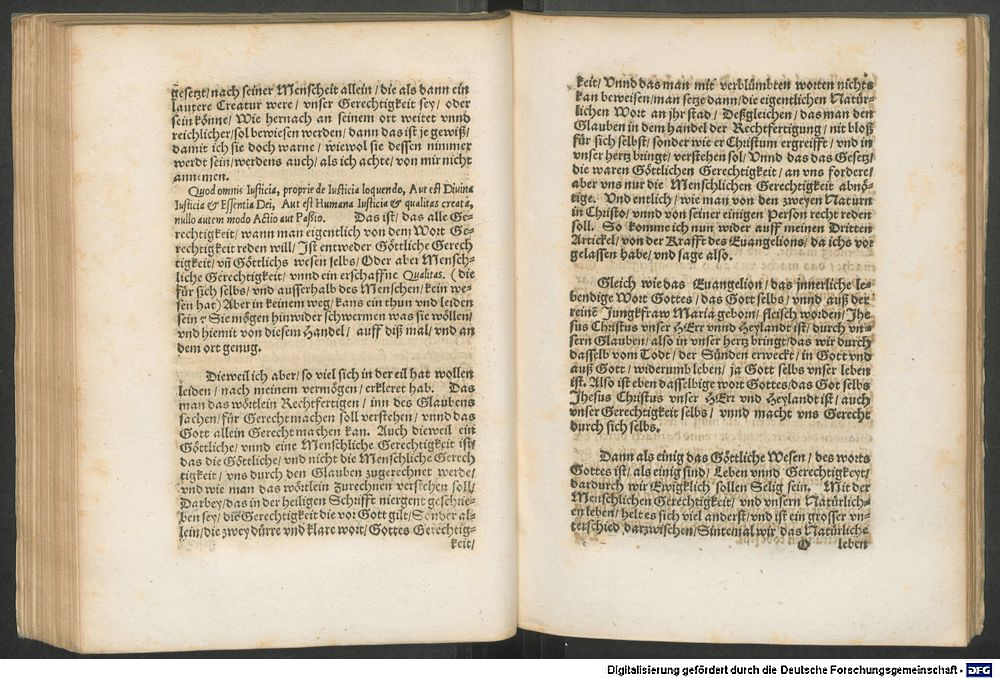 gesetzt/ nach seiner Menscheit allein/ die als dann ein
lautere Creatur were/ vnser Gerechtigkeit sey/ oder
sein könne/ Wie hernach an seinem ort weitet vnnd
reichlicher/ sol bewiesen werden/ dann das ist je gewiß/
damit ich sie doch warne/ wiewol sie dessen nimmer
werdt sein/ werdens auch/ als ich achte/ von mir nicht
annemen.
Quod omnis Iusticia, proprie de Iusticia loquendo, Aut est Diuina
Iusticia & Essentia Dei, Aut est Humana Iusticia & qualitas creata,
nullo autem modo Actio aut Paßio. Das ist/ das alle Ge-
rechtigkeit/ wann man eigentlich von dem Wort Ge-
rechtigkeit reden will/ Ist entweder Göttliche Gerech
tigkeit/ vñ Göttlichs wesen selbs/ Oder aber Mensch-
liche Gerechtigkeit/ vnnd ein erschaffne Qualitas. (die
für sich selbs/ vnd ausserhalb des Menschen/ kein we-
sen hat) Aber in keinem weg/ kans ein thun vnd leiden
sein? Sie mögen hinwider schwermen was sie wöllen/
vnd hiemit von diesem Handel/ auff diß mal/ vnd an
dem ort genug.
Dieweil ich aber/ so viel sich in der eil hat wollen
leiden/ nach meinem vermögen/ erkleret hab. Das
man das wörtlein Rechtfertigen/ inn des Glaubens
sachen/ für Gerecht machen soll verstehen/ vnnd das
Gott allein Gerecht machen kan. Auch dieweil ein
Göttliche/ vnnd eine Menschliche Gerechtigkeit ist/
das die Göttliche/ vnd nicht die Menschliche Gerech
tigkeit/ vns durch den Glauben zugerechnet werde/
vnd wie man das wörtlein Zurechnen verstehen soll/
Darbey/ das in der heiligen Schrifft niergent geschrie-
ben sey/ die Gerechtigkeit die vor Gott gilt/ Sonder al-
lein/ die zwey dürre vnd klare wort/ Gottes Gerechtig-
keit/
keit/ Vnnd das man mit verblümbten worten nichts
kan beweisen/ man setze dann/ die eigentlichen Natür-
lichen Wort an jhr stad/ Deßgleichen/ das man den
Glauben in dem handel der Rechtfertigung/ nit bloß
für sich selbst/ sonder wie er Christum ergreifft/ vnd in
vnser hertz bringt/ verstehen sol/ Vnnd das das Gesetz/
die waren Göttlichen Gerechtigkeit/ an vns fordere/
aber vns nur die Menschlichen Gerechtigkeit abnö-
tige. Vnd entlich/ wie man von den zweyen Naturn
in Christo/ vnnd von seiner einigen Person recht reden
soll. So komme ich nun wider auff meinen Dritten
Artickel/ von der Krafft des Euangelions/ da ichs vor
gelassen habe/ vnd sage also.
Gleich wie das Euangelion/ das jnnerliche le-
bendige Wort Gottes/ das Gott selbs/ vnnd auß der
reinẽ Jungkfraw Maria geborn/ fleisch worden/ Jhe
sus Christus vnser HErr vnnd Heylandt ist/ durch vn-
sern Glauben/ also in vnser hertz bringt/ das wir durch
dasselb vom Todt/ der Sünden erweckt/ in Gott vnd
auß Gott/ widerumb leben/ ja Gott selbs vnser leben
ist. Also ist eben dasselbige wort Gottes/ das Got selbs
Jhesus Christus vnser HErr vnd Heylandt ist/ auch
vnser Gerechtigkeit selbs/ vnnd macht vns Gerecht
durch sich selbs.
Dann als einig das Göttliche Wesen/ des worts
Gottes ist/ als einig sind/ Leben vnnd Gerechtigkeyt/
dardurch wir Ewigklich sollen Selig sein. Mit der
Menschlichen Gerechtigkeit/ vnd vnsern Natürlich-
en leben/ helt es sich viel anderst/ vnd ist ein grosser vn-
terschied darzwischen/ Sintemal wir das Natürliche
O leben
Digitalisierung gefördert durch die Deutsche Forschungsgemeinschaft - DFG